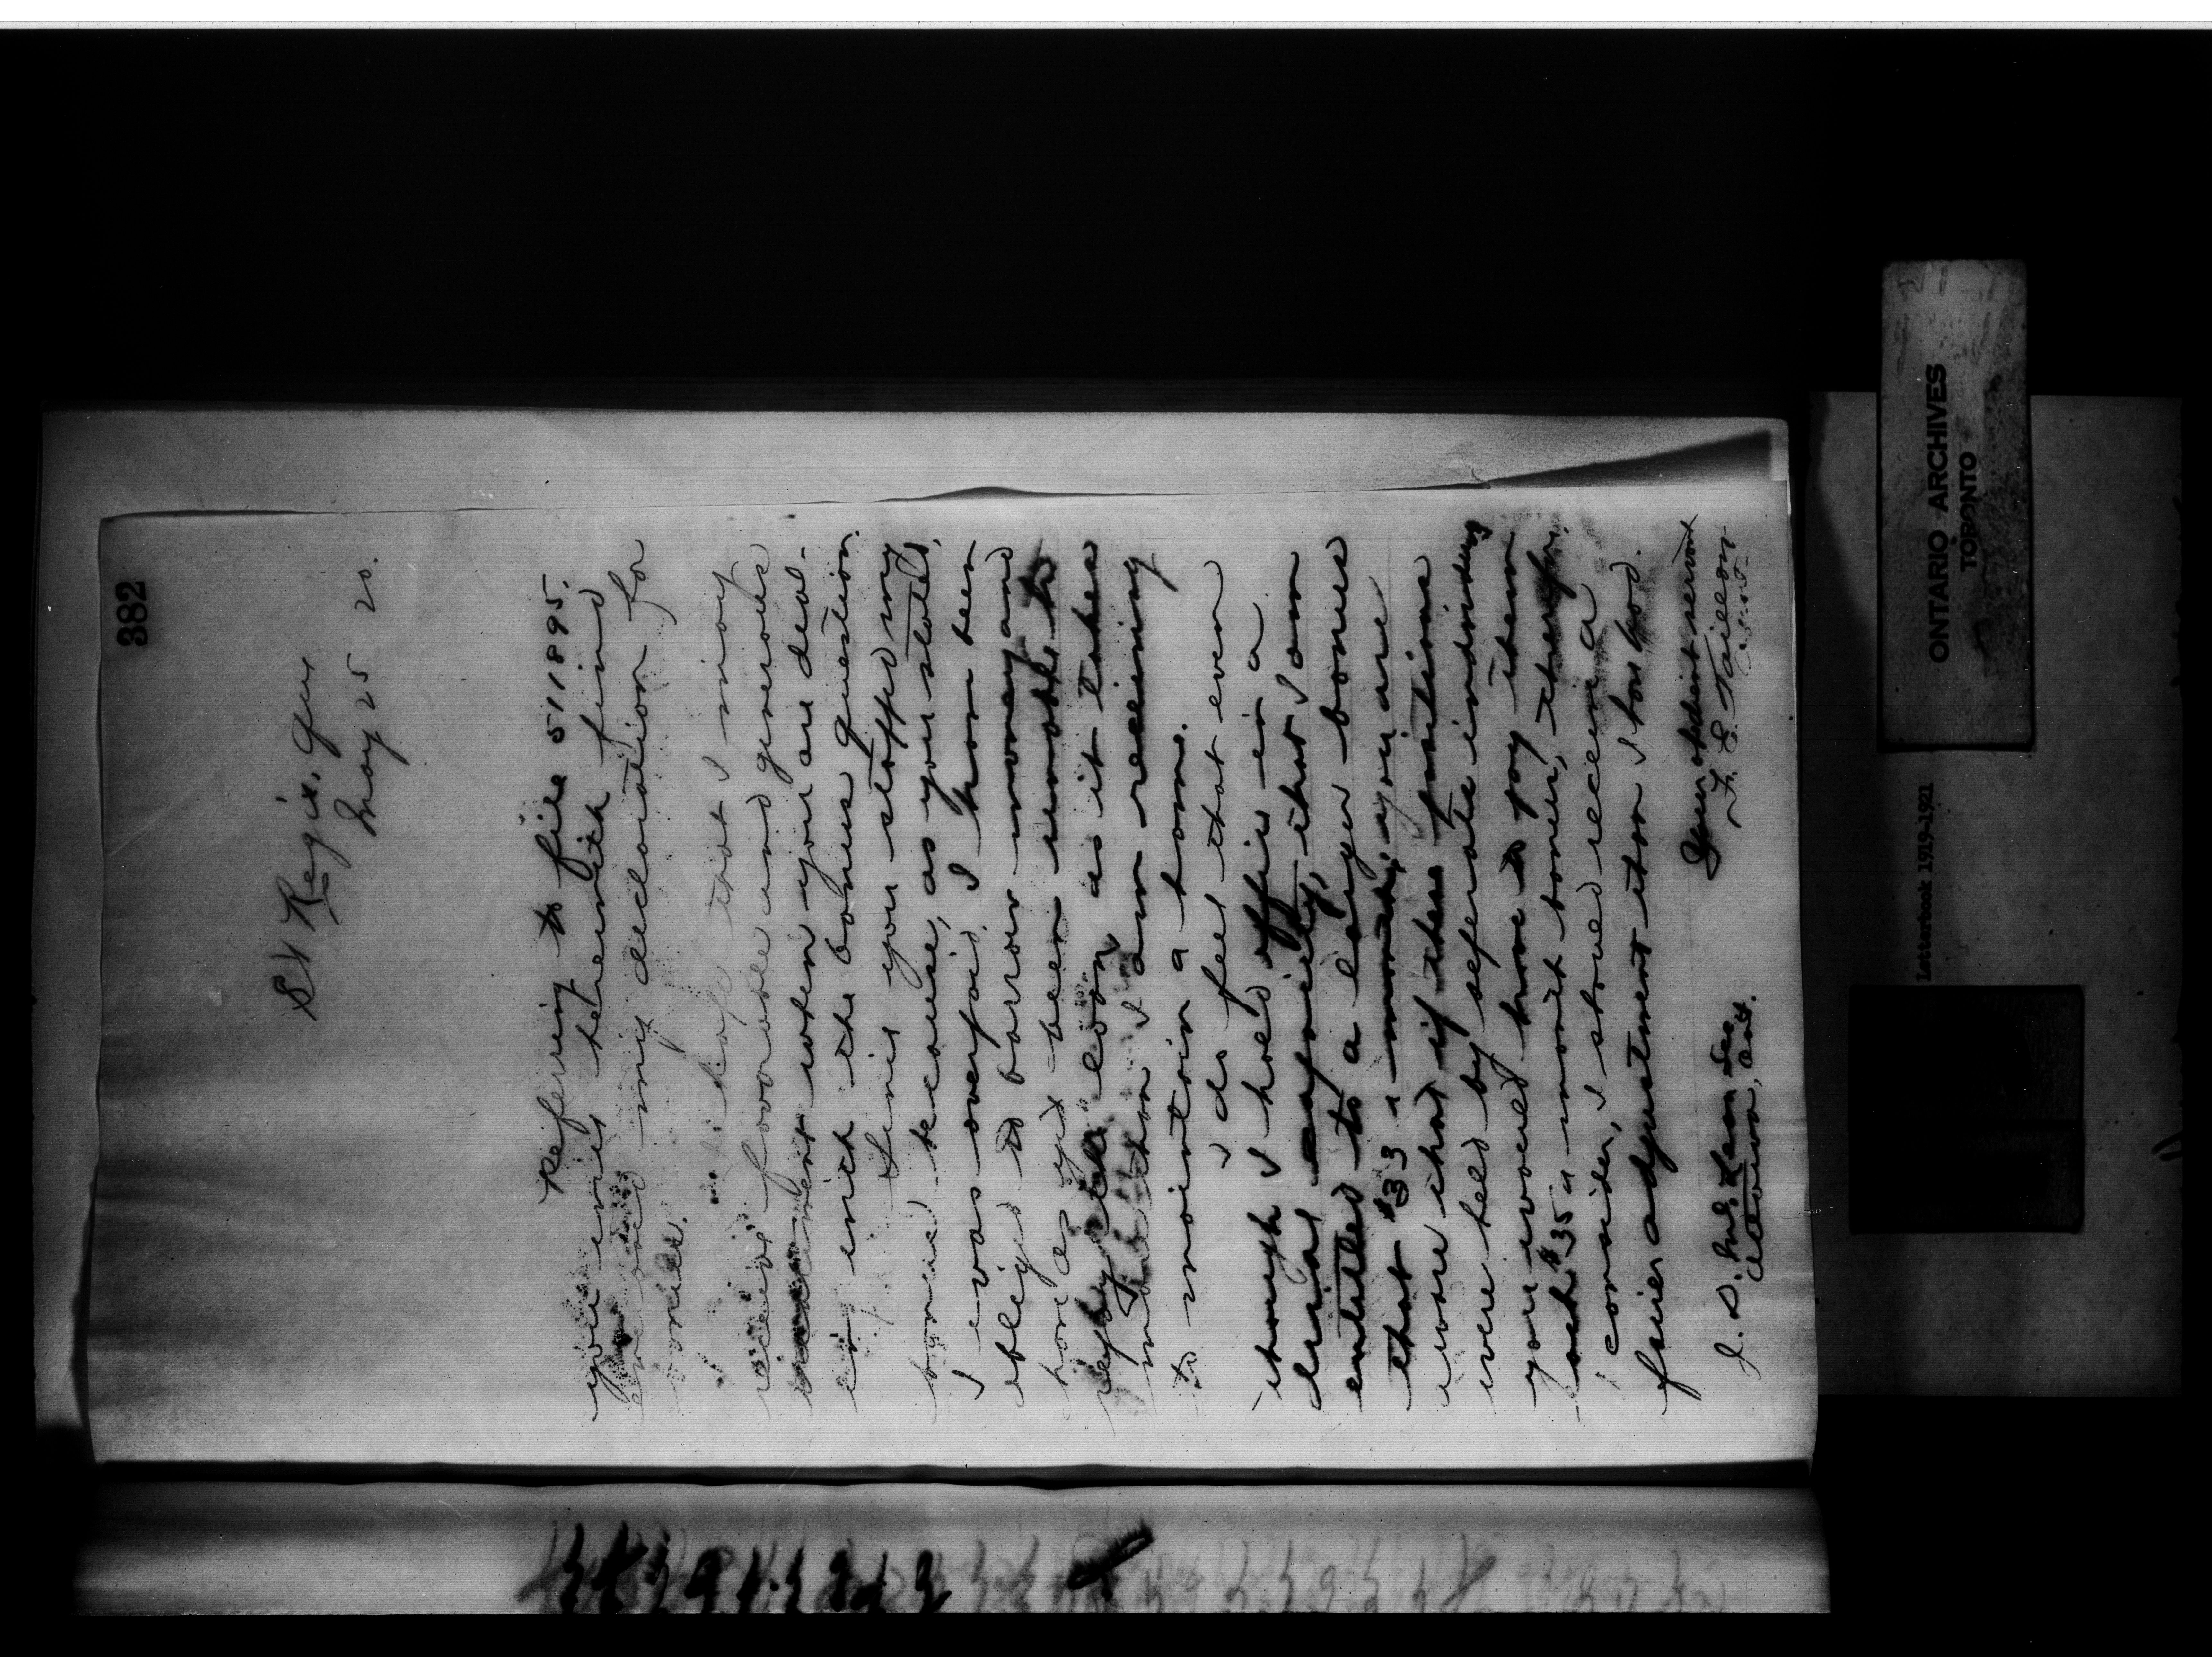 382
St Regis. Que
May 25 20.
Referring to file 511895.
you will herewith find
enclosed my declaration for
bonus.
I hope that I may
receive favorable and generous
treatment when you are deal-
ing with the bonus question.
Since you stopped my
bonus because, as you stated,
I was overpaid, I have been
obliged to borrow money and
have as yet been unable to
repay the loan as it takes
more than I am receiving
to maintain a home.
I do feel that even
though I hold office in a
dual capacity, that I am
entitled to a larger bonus
that $33 a month, you are
aware that if these positions
were held by seperate individuals
you would have to pay them
each $35 a month bonus, therefor,
I consider, I should receive a
fairer adjustment than I have had.
Your obedient servant
F. E. Taillon
J. D. McLean Sec
Ottawa, Ont.
ONTARIO ARCHIVES
TORONTO
Letterbook 1919-1921